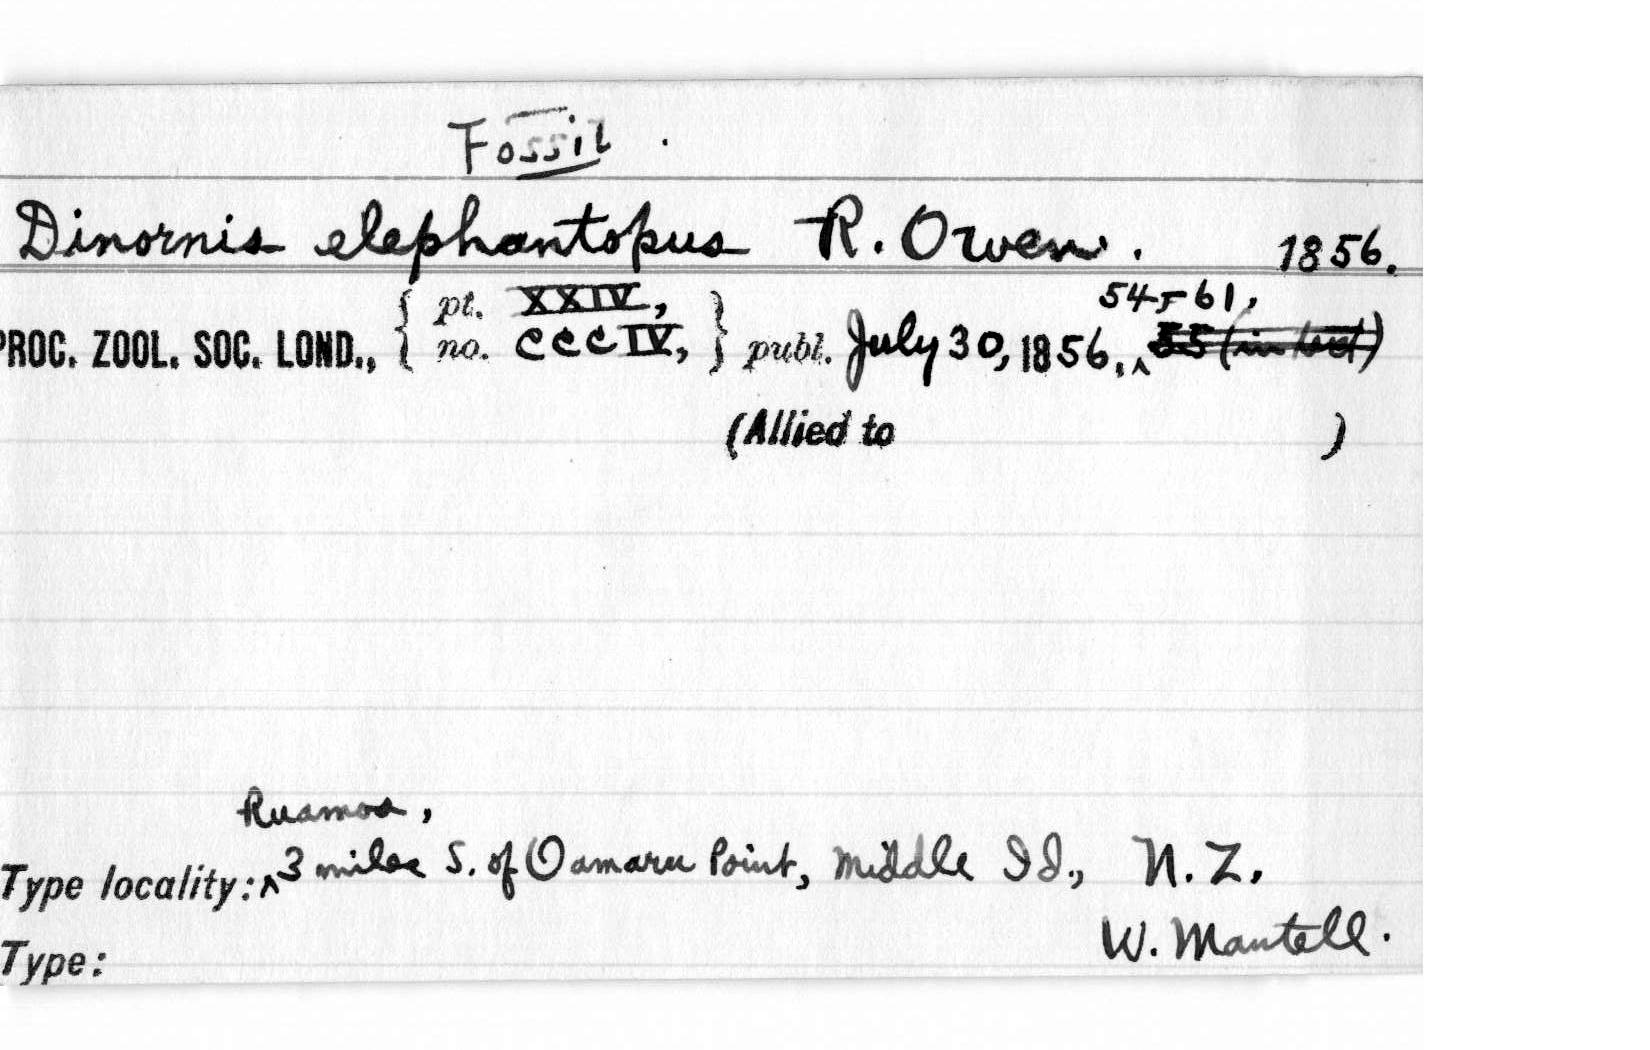 Fossil.
Dinornis elephantopus R. Owen. 1856.
pt. XXIV, 54-61,
PROC. ZOOL. SOC. LOND., no. CCCIV, publ. July 30, 1856, ^ 55 (in text)
(Allied to )
Ruamoa,
Type locality: ^ 3 miles S. of Oamaru Point, Middle Id., N.Z.
W. Mantell.
Type: